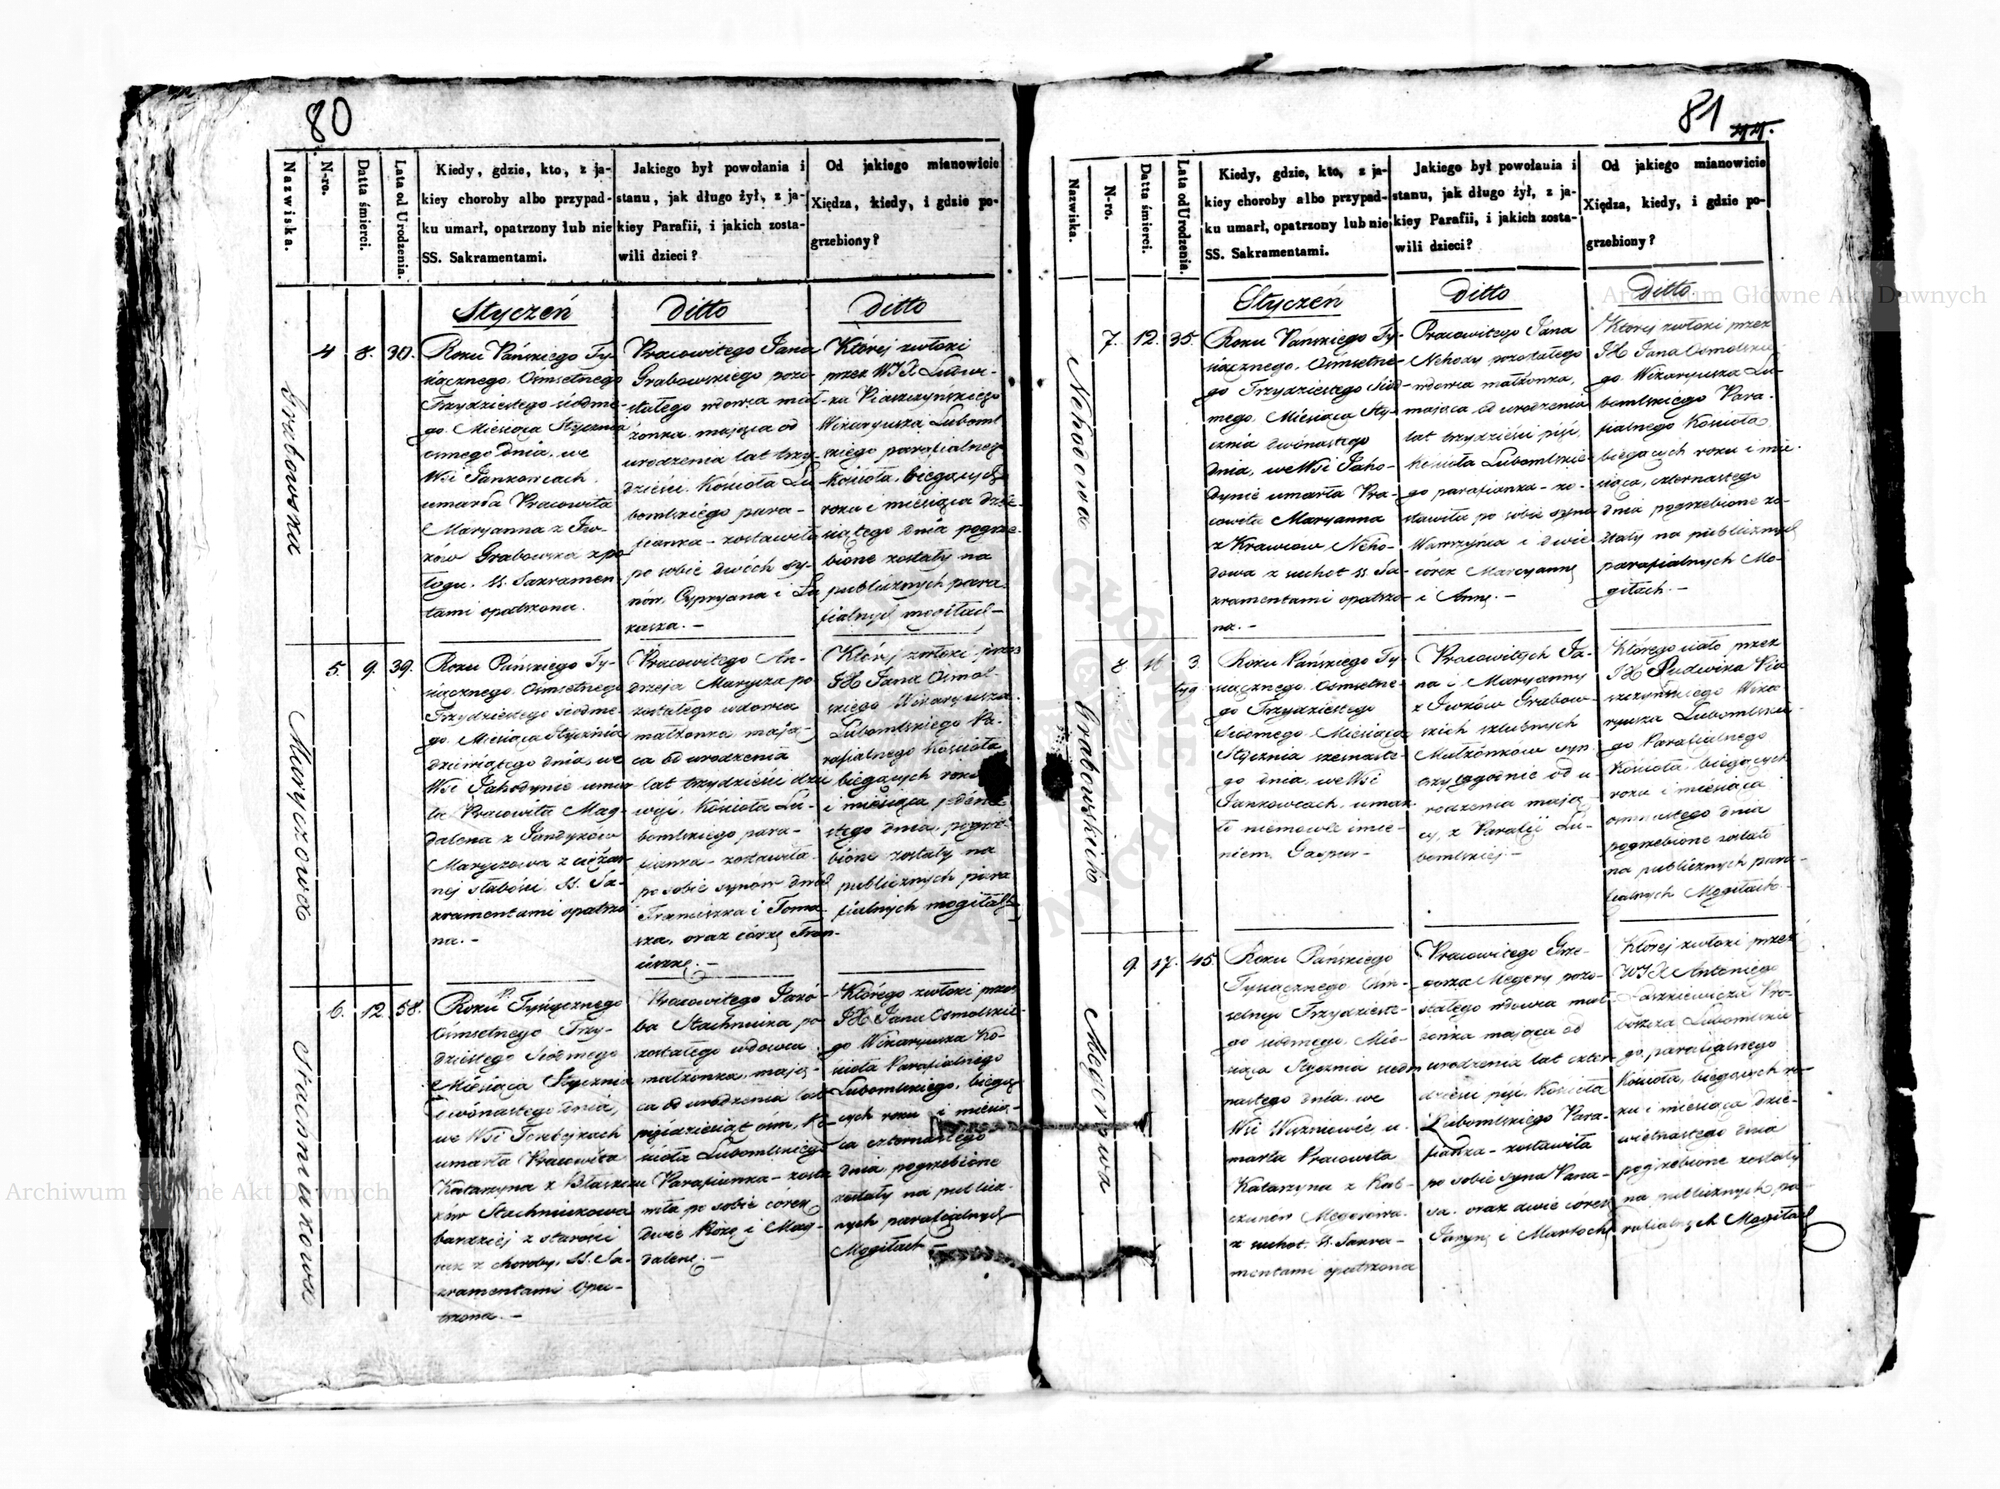 80
Nazwiska.
N-ro.
Datta śmierci.
Lata od Urodzenia.
Kiedy, gdzie, kto, z ja-
kiey choroby albo przypad-
ku umarł, opatrzony lub nie
SS. Sakramentami.
Jakiego był powołania i
stanu, jak długo żył, z ja-
kiey Parafii, i jakich zosta-
wili dzieci?
Od jakiego mianowicie
Xiędza, kiedy, i gdzie po-
grzebiony?
Styczeń
Ditto
Ditto
Grabowska
4
8.
30.
Roku Pańskiego Ty-
siącznego, Ośmsetnego
Trzydziestego siódme-
go. Miesiąca Stycznia
ósmego dnia, we
Wsi Jankowcach
umarła Pracowita
Maryanna z Iw-
ków Grabowska z po
łogu. SS. Sakramen-
tami opatrzona.
Pracowitego Jana
Grabowskiego pozo-
stałego wdowca mał-
żonka, mająca od
urodzenia lat trzy-
dzieści, Kościoła Lu
bomlskiego para-
fianka - zostawiła
po sobie dwóch sy-
nów, Cypryana i Łu
kasza. -
Której zwłoki
przez WJX Ludwi-
ka Piaszczyńskiego
Wikaryusza Luboml
skiego parafialnego
Kościoła, biegących
roku i miesiąca dzie-
siątego dnia pogrze-
bione zostały na
publicznych para
fialnych mogiłach -
Maryczowa
5.
9.
39.
Roku Pańskiego Ty-
siącznego, Ośmsetnego
Trzydziestego siódme-
go. Miesiąca Stycznia
dziewiątego dnia, we
Wsi Jahodynie umar
ła Pracowita Mag-
dalena z
Maryczowa z ciężar-
nej słabości. SS. Sa-
kramentami opatrzo
na. -
Pracowitego An-
drzeja Marycza po
zostałego wdowca
małżonka, mają-
ca od urodzenia
lat trzydzieści dzie
więć, Kościoła Lu-
bomlskiego para-
fianka - zostawiła
po sobie synów dwóch
Franciszka i Toma-
sza, oraz córkę Fran-
ciszkę. -
Której zwłoki przez
JX Jana Osmol-
skiego Wikaryusza
Lubomlskiego Pa-
rafialnego Kościoła
biegących roku
i miesiąca jedena-
stego dnia, pogrze-
bione zostały na
publicznych para
fialnych mogiłach
Stachniukowa
6.
12.
58.
Roku P. Tysiącznego
Ośmsetnego Trzy-
dziestego Siódmego
Miesiąca Stycznia
dwónastego dnia,
we Wsi Terebejkach
umarła Pracowita
Katarzyna z Błaszczu
ków Stachniukowa
bardziej z starości
jak z choroby, SS. Sa-
kramentami Opa-
trzona. -
Pracowitego Jakó-
ba Stachniuka po
zostałego wdowca
małżonka, mają-
ca od urodzenia lat
pięćdziesiąt ośm, Ko-
ścioła Lubomlskiego
Parafianka - zosta
wiła po sobie córek
dwie Rózę i Mag-
dalenę. -
Którego zwłoki przez
JX Jana Osmolskie-
go Wikaryusza Ko-
ścioła Parafialnego
Lubomlskiego, biegą
cych roku i miesią-
ca czternastego
dnia, pogrzebione
zostały na publicz-
nych parafialnych
Mogiłach -
81
44.
Nazwiska.
N-ro.
Datta śmierci.
Lata od Urodzenia.
Kiedy, gdzie, kto, z ja-
kiey choroby albo przypad-
ku umarł, opatrzony lub nie
SS. Sakramentami.
Jakiego był powołania i
stanu, jak długo żył, z ja-
kiey Parafii, i jakich zosta-
wili dzieci?
Od jakiego mianowicie
Xiędza, kiedy, i gdzie po-
grzebiony?
Styczeń
Ditto
Ditto
Nehodowa
7.
12.
35.
Roku Pańskiego Ty-
siącznego, Ośmsetne-
go Trzydziestego Siód-
mego, Miesiąca Sty-
cznia dwónastego
dnia, we Wsi Jaho-
dynie umarła Pra-
cowita Maryanna
z Krawców Neho-
dowa z suchot SS. Sa-
kramentami opatrzo-
na. -
Pracowitego Jana
Nehody pozostałego
wdowca małżonka,
mająca od urodzenia
lat trzydzieści pięć,
Kościoła Lubomlskie-
go parafianka - zo-
stawiła po sobie syna
Wawrzyńca i dwie
córek Maryannę
i Annę. -
Której zwłoki przez
JX Jana Osmolskie
go. Wikaryusza Lu-
bomlskiego Para-
fialnego Kościoła
biegących roku i mie-
siąca, czternastego
dnia pogrzebione zo-
stały na publicznych
parafialnych Mo-
giłach. -
Grabowskiego
8.
16
3
tyg
Roku Pańskiego Ty-
siącznego Ośmsetne-
go Trzydziestego
Siódmego Miesiąca
Stycznia szesnaste-
go dnia, we Wsi
Jankowcach, umar-
ło niemowle imie-
niem, Gaspar -
Pracowitych Ja-
na i Maryanny
z Iwków Grabow-
skich szlubnych
Małżonków syn
trzy tygodnie od u
rodzenia mają-
cy, z Parafii Lu-
bomlskiej -
Którego ciało przez
JX Ludwika Pia
szczyńskiego Wika
ryusza Lubomlskie-
go Parafialnego
Kościoła, biegących
roku i miesiąca
osmnastego dnia
pogrzebione zostało
na publicznych para-
fialnych Mogiłach. -
Megerowa
9
17.
45.
Roku Pańskiego
Tysiącznego Ośm-
setnego Trzydzieste-
go siódmego, Mie-
siąca Stycznia siedm
nastego dnia, we
Wsi Wiszniowie u-
marła Pracowita
Katarzyna z
Megerowa
z suchot. SS. Sakra-
mentami opatrzona
Pracowitego Grze-
gorza Megery pozo-
stałego wdowca mał-
żonka mająca od
urodzenia lat czter-
dzieści pięć, Kościoła
Lubomlskiego Para-
fianka - zostawiła
po sobie syna Pana-
sa, oraz dwie córek
i
Której zwłoki przez
WJX Antoniego
Paszkiewicza Pro-
boszcza Lubomlskie-
go, parafialnego
Kościoła, biegących ro-
ku i miesiąca dzie-
więtnastego dnia
pogrzebione zostały
na publicznych pa-
rafialnych Mogiłach
Archiwum Główne Akt Dawnych
Archiwum Główne Akt Dawnych